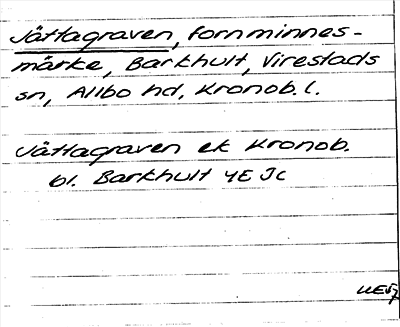 Jättagraven, fornminnes-
märke, Barkhult, Virestads
sn, Allbo hd, Kronob. l.
Jättagraven ek Kronob.
bl. Barkhult 4E Jc